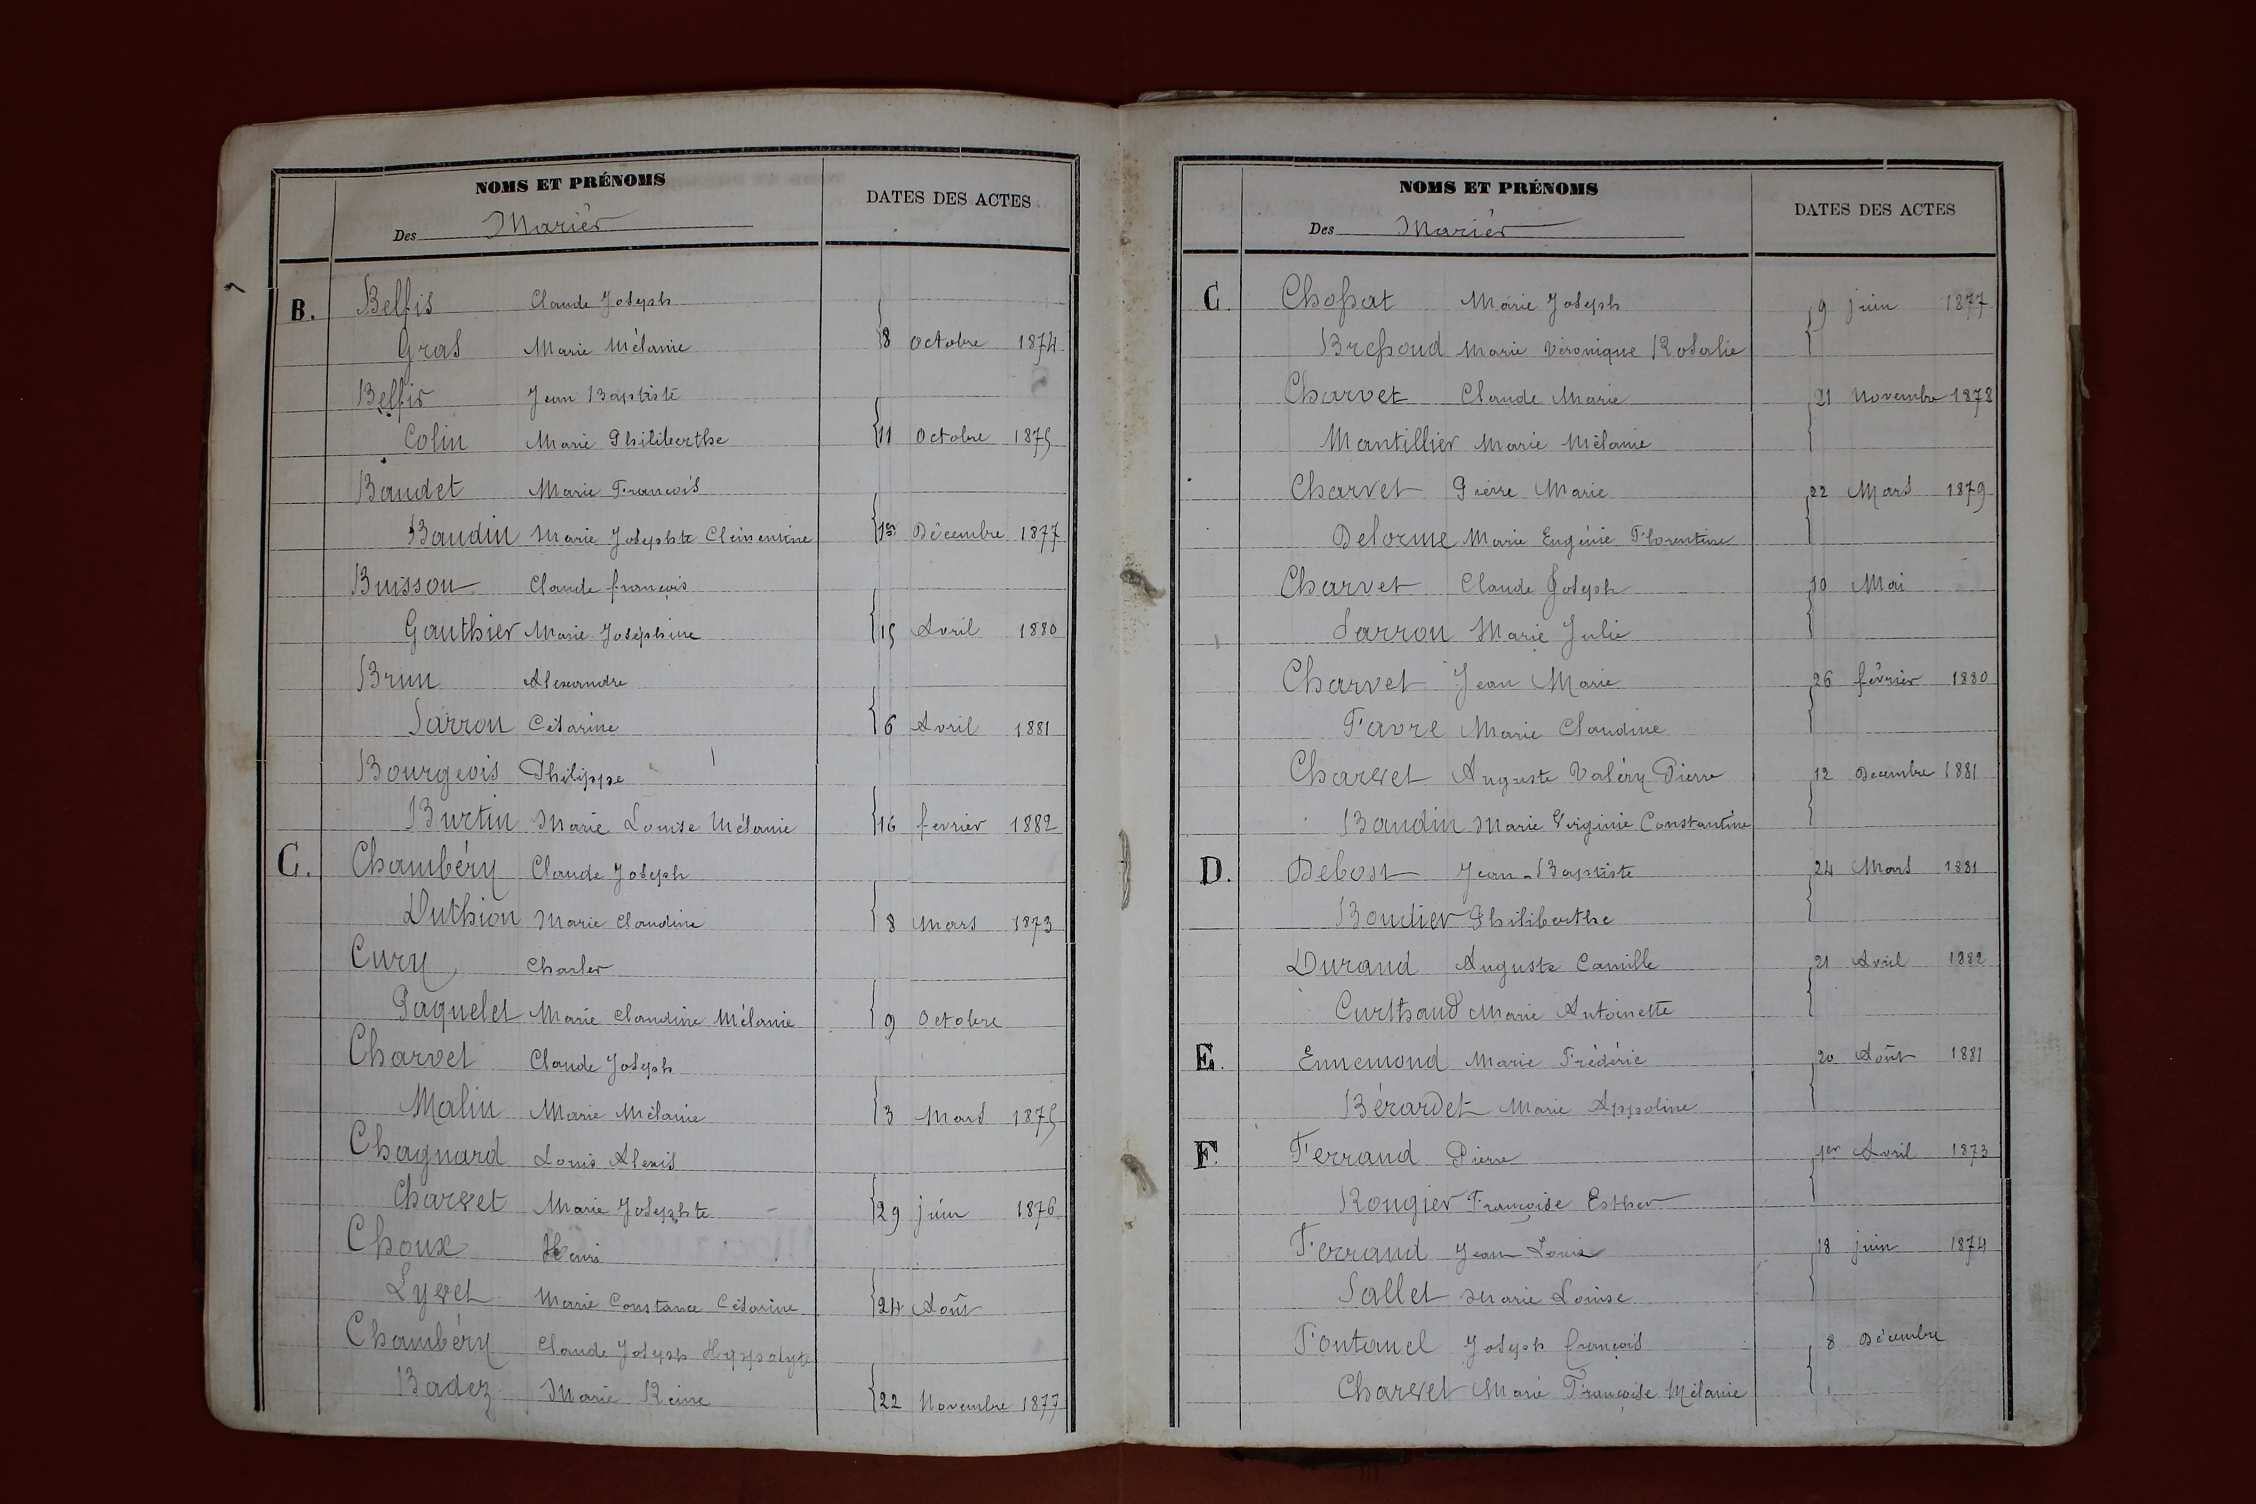 NOMS ET PRÉNOMS
DATES DES ACTES
Des Mariés
B. Belfis Claude Joseph
Gras Marie Mélanie 8 octobre 1874
Belfis Jean Baptiste
Colin Marie Philiberthe 11 octobre 1875
Baudet Marie François
Baudin Marie Josephte Clémentine 1er Décembre 1877
Buisson Claude françois
Gauthier Marie Joséphine 15 Avril 1880
Brun Alexandre
Sarron Césarine 6 Avril 1881
Bourgeois Philippe
Burtin Marie Louise Mélanie 16 fevrier 1882
C. Chambéry Claude Joseph
Duthion Marie Claudine 8 Mars 1873
Cury Charles
Paquelet Marie Claudine Mélanie 9 Octobre
Charvet Claude Joseph
Malin Marie Mélanie 3 Mars 1875
Chagnard Louis Alexis
Charvet Marie Josephte 29 juin 1876
Choux Henri
Lyvet Marie Constance Césarine 24 Août
Chambéry Claude Joseph Hyppolyte
Badez Marie Reine 22 Novembre 1877
NOMS ET PRÉNOMS
DATES DES ACTES
Des Mariés
C Chossat Marie Joseph 9 juin 1877
Bressoud Marie Véronique Rosalie
Charvet Claude Marie 21 Novembre 1878
Mantillier Marie Mélanie
Charvet Pierre Marie 22 Mars 1879
Delorme Marie Eugénie Florentine
Charvet Claude Joseph 10 Mai
Sarron Marie Julie
Charvet Jean Marie 26 février 1880
Favre Marie Claudine
Charvet Auguste Valéry Pierre 12 Decembre 1881
Baudin Marie Virginie Constantine
D. Debost Jean-Baptiste 24 Mars 1881
Boudier Philiberthe
Durand Auguste Camille 21 Avril 1882
Curthaud Marie Antoinette
E. Ennemond Marie Frédéric 20 Août 1881
Bérardet Marie Appoline
F. Ferrand Pierre 1er Avril 1873
Rougier Françoise Esther
Ferrand Jean Louis 18 juin 1874
Sallet Marie Louise
Fontanel Joseph françois 8 Décembre
Charvet Marie Françoise Mélanie